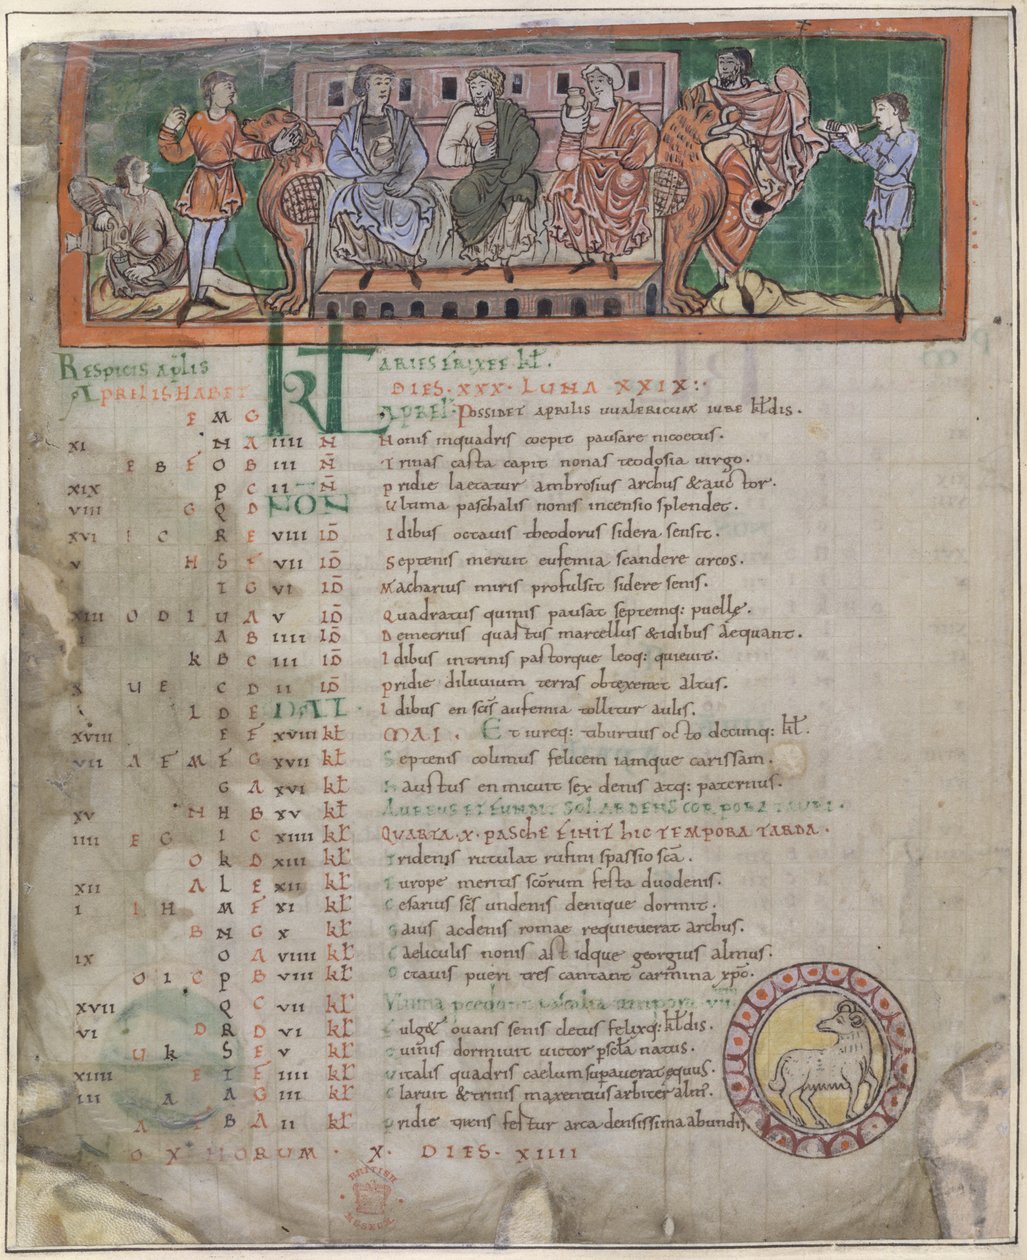 Respicis ap̄lis
Aprelis habet
KL ARIES ERIXEE kł.
DIES · XXX · LUNA XXIX :·
F M G APREL· Possidet aprilis uualericum iure kłdis.
XI N A IIII N Nonis inquadris coepit pausare nicoetus.
F B F O B III N̄ Trinas casta capit nonas teodosia virgo.
XIX P C II N̄ pridie laetatur ambrosius archus & auctor.
VIII G Q D NON Ultima paschalis nonis incensio splendet.
XVI I C R E VIII ID̄ Idibus octauis theodorus sidera sensit.
V H S F VII ID̄ Septenis meruit eufemia scandere circos.
T G VI ID̄ Macharius miris profulsit sidere senis.
XIII O D I U A V ID̄ Quadratus quinis pausat septemq: puellę.
I A B IIII ID̄ Demetrius quastus marcellus & idibus aequant.
k B C III ID̄ Idibus intrinis pastorque leoq: quieuit.
X U E C D II ID̄ pridie diluuium terras obtexenet altus.
L D E IDUS Idibus en sc̄s aufemia tollitur aulis.
XVIII E F XVIII kł MAI. Et iureq: tiburtius octo decimq: kł.
VII A F M F G XVII kł Septenis colimus felicem iamque carissam.
G A XVI kł Faustus en micuit sex denis atq: paternus.
XV N H B XV kł AUREUS ET FUNDIT SOL ARDENS CORPORA TAURI.
IIII F G I C XIIII kł QUARTA · X · PASCHĘ FINIT HIC TEMPORA TARDA.
O k D XIII kł Tridenis rutulat rufini passio sc̄a.
XII A L E XII kł Europe meritis sc̄orum festa duodenis.
I I H M F XI kł Cesarius sc̄s undenis denique dormit.
B N G X kł Gaius acdenis romae requieuerat archus.
IX O A VIIII kł Caeliculis nonis ast idque georgius almus.
O I C P B VIII kł Octauis pueri tres cantant carmina xp̄o.
XVII Q C VII kł Ultima
VI D R D VI kł Fulg& ouans senis cletus felixq: kłdis.
U k S E V kł Quinis dormiuit uictor psc̄la natus.
XIIII E T F IIII kł Uitalis quadris caelum supauerat equus.
IIII A A G III kł Claruit & trinis maxentius arbiter alm̄.
A L B A II kł Pridie quens fertur arca densissima abundis
NOX HORUM · X · DIES · XIIII
BRITISH
MUSEUM